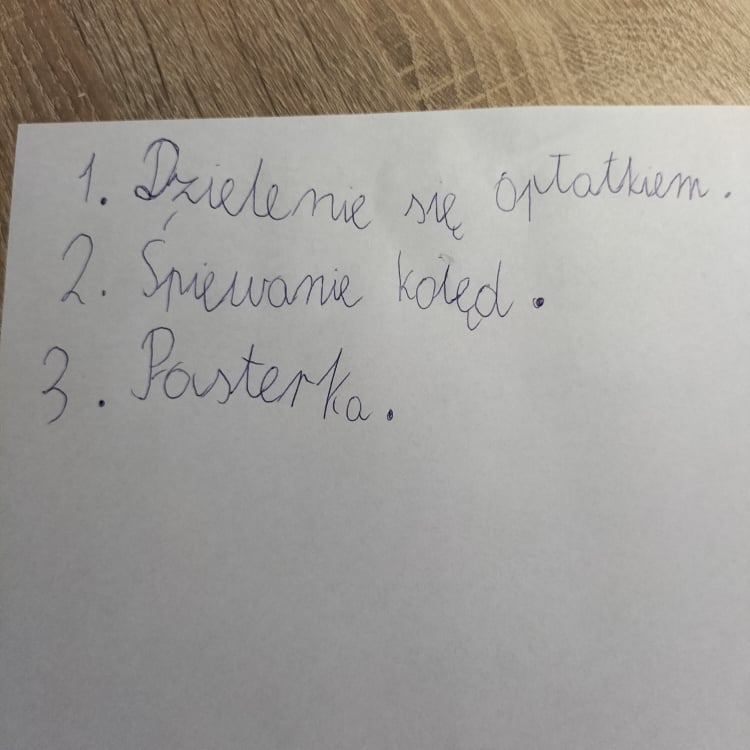 1. Dzielenie się opłatkiem.
2. Śpiewanie kolęd.
3. Pasterka.